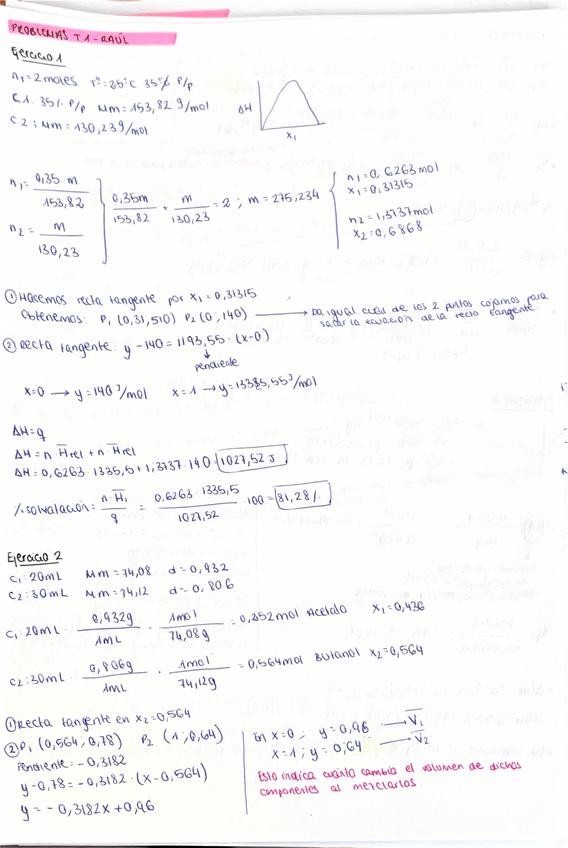 PROBLEMAS T1-RAÚL
Ejercicio 1
nT=2moles Tª=25ºC 35% P/P
C1: 35% P/P Mm=153,82 g/mol
C2: Mm=130,23g/mol
ΔH
x1
n1= 0,35·m / 153,82
n2= m / 130,23
0,35m / 153,82 + m / 130,23 = 2 ; m=275,234
n1=0,6263mol
x1=0,31315
n2=1,3737mol
x2=0,6868
① Hacemos recta tangente por x1=0,31315
Obtenemos: P1 (0,31,510) P2 (0,140) → Da igual cual de los 2 puntos cojamos para
sacar la ecuación de la recta tangente
② Recta tangente: y-140=1193,55·(x-0)
pendiente
x=0 → y=140J/mol x=1 → y=13385,55J/mol
ΔH=q
ΔH=n·H̅rel+n·H̅rel
ΔH=0,6263·1335,5+1,3737·140=1027,52J
%solvatación: n·H̅1 / q = 0,6263·1335,5 / 1027,52 ·100=81,28%
Ejercicio 2
C1:20mL Mm=74,08 d=0,932
C2:30mL Mm=74,12 d=0,806
C1·20mL· 0,932g / 1mL · 1mol / 74,08g =0,252mol Acetato x1=0,436
C2:30mL· 0,806g / 1mL · 1mol / 74,12g =0,564mol Butanol x2=0,564
① Recta tangente en x2=0,564
② P1 (0,564;0,78) P2 (1;0,64)
Pendiente=-0,3182
y-0,78=-0,3182·(x-0,564)
y=-0,3182x+0,96
En x=0; y=0,96 → V̅1
x=1; y=0,64 → V̅2
Esto indica cuánto cambia el volumen de dichos
componentes al mezclarlos